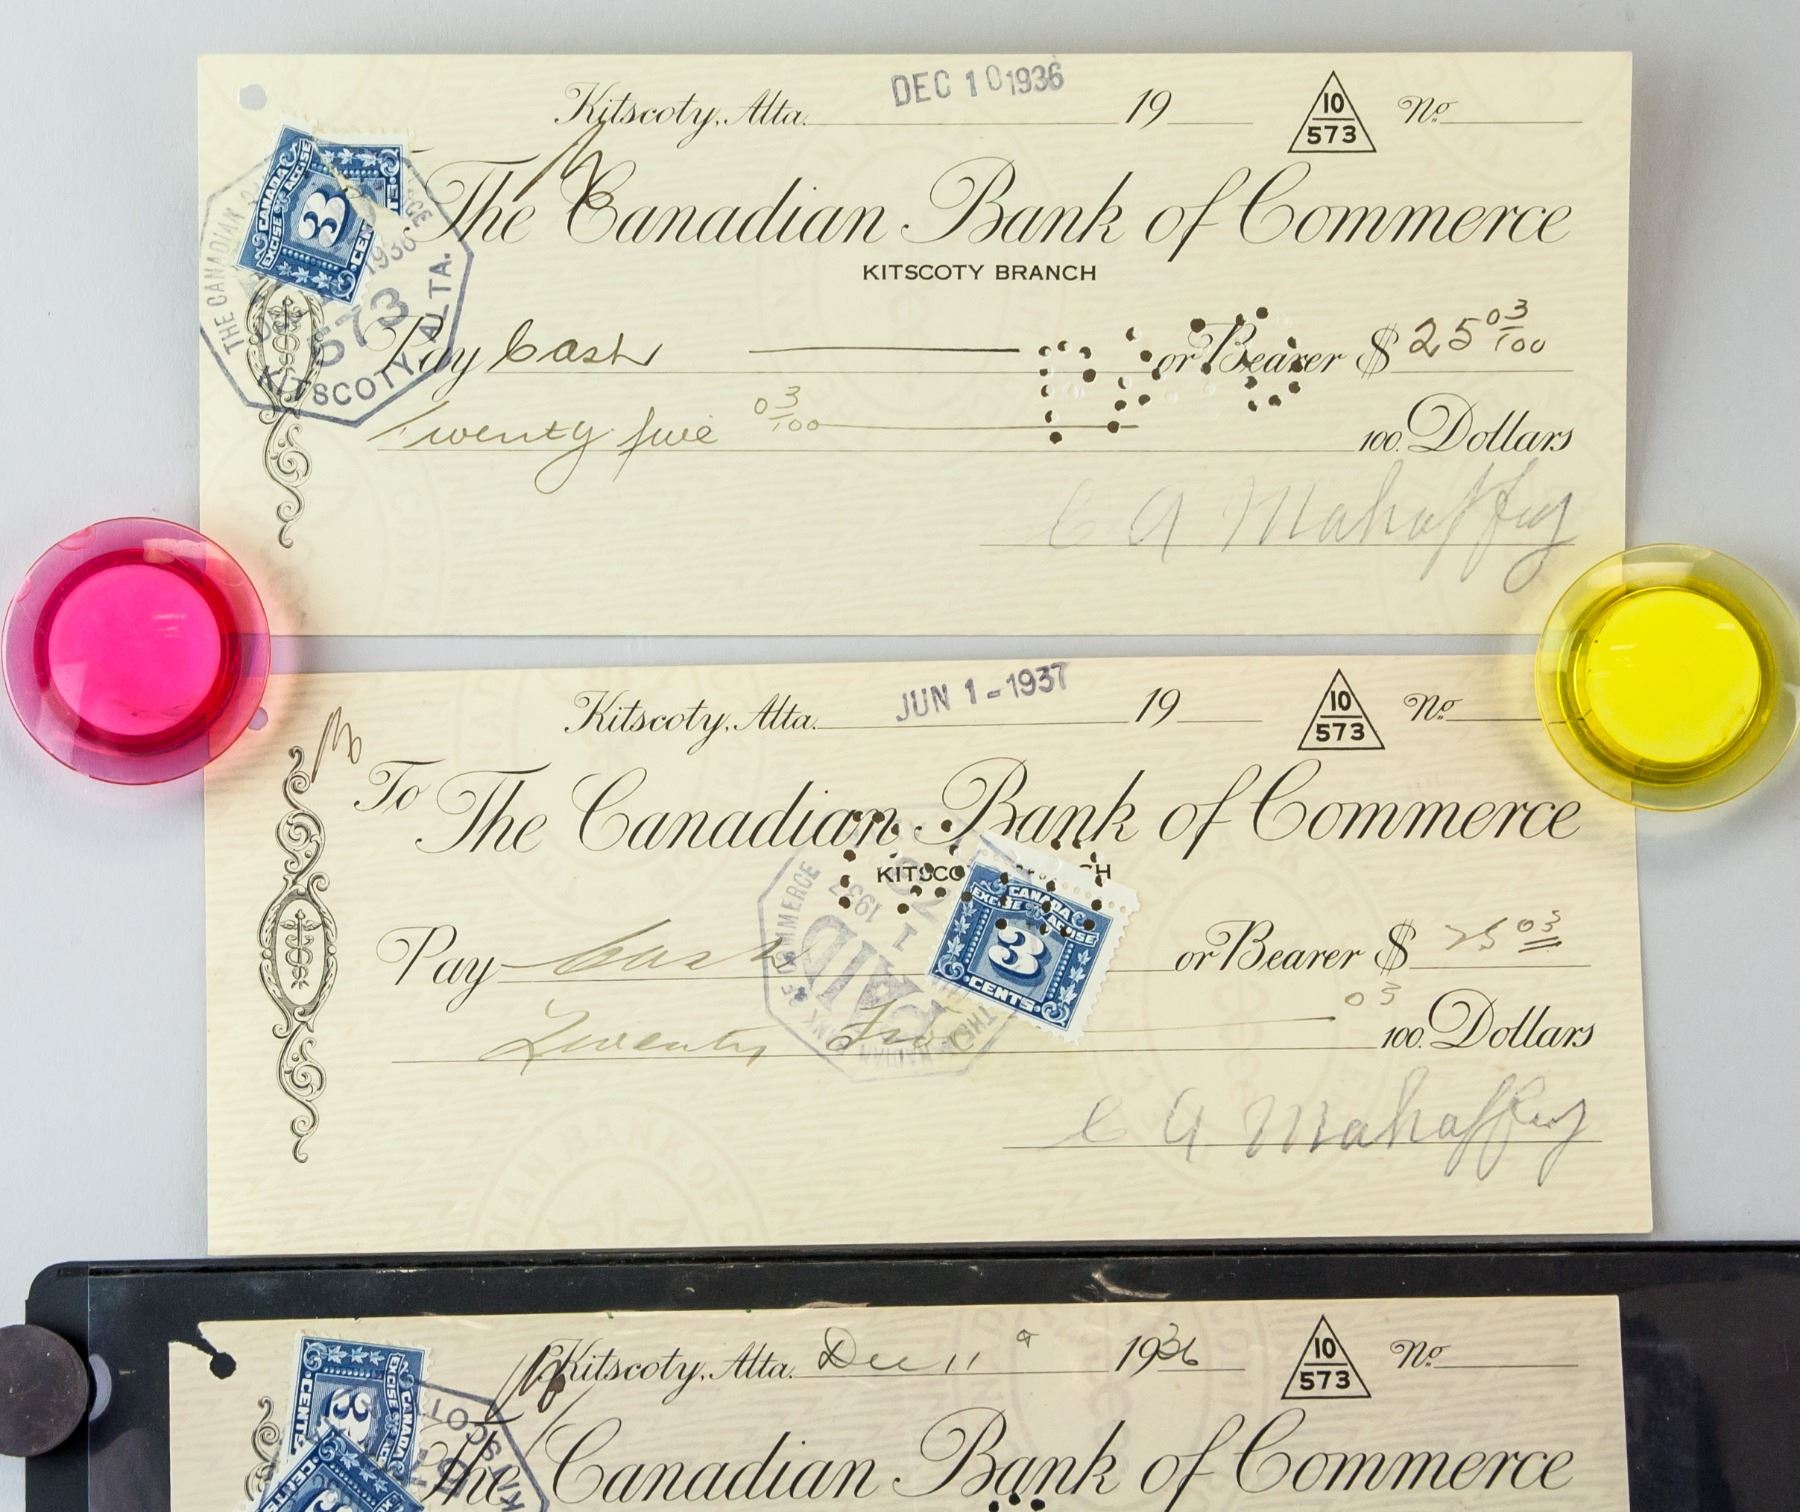 Kitscoty, Alta. DEC 10 1936 19 10/573 No.
The Canadian Bank of Commerce
KITSCOTY BRANCH
CANADA
EXCISE ACCISE
3
CEN
THE CANADIAN
1936
573
KITSCOTY ALTA.
Pay Cash or Bearer $ 25 03/100
Twenty five 03/100 100 Dollars
C A Mahaffey
Kitscoty, Alta. JUN 1-1937 19 10/573 No.
To The Canadian Bank of Commerce
KITSCO H
CANADA
EXCISE ACCISE
3
CENTS
OF COMMERCE
1937
PAID
THE
Pay Cash or Bearer $ 25 03
Twenty Five 03 100 Dollars
C A Mahaffey
Kitscoty, Alta. Dec 11 1936 10/573 No.
CANADA
EXCISE
3
CENTS
KITSCOT
The Canadian Bank of Commerce